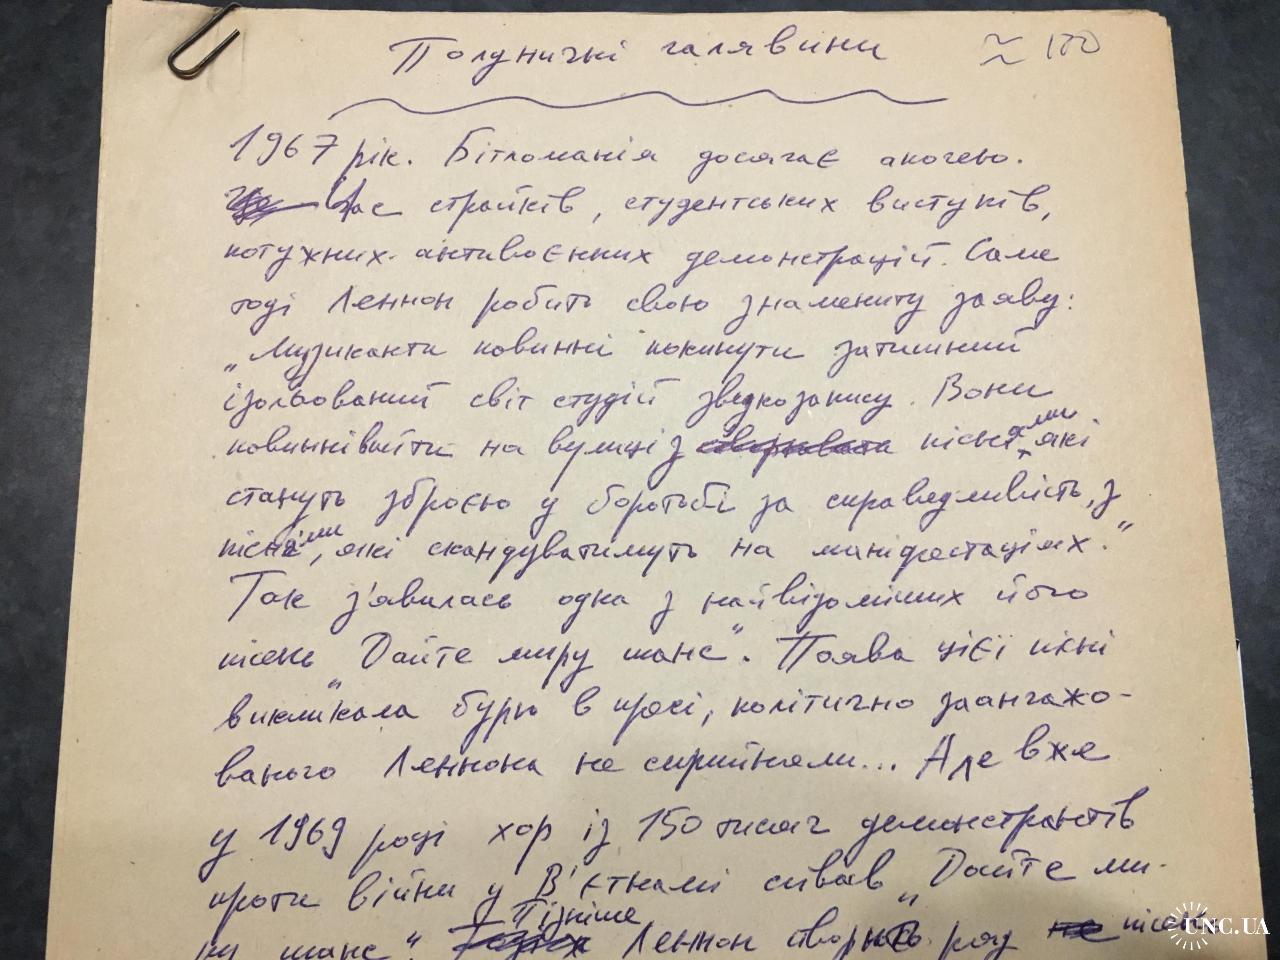 Полуничні галявини ≈ 100
1967 рік. Бітломанія досягає апогею.
Час страйків, студентських виступів,
потужних антивоєнних демонстрацій. Саме
тоді Леннон робить свою знамениту заяву:
„Музиканти повинні покинути затишний
ізольований світ студій звукозапису. Вони
повинні вийти на вулиці з піснями, які
стануть зброєю у боротьбі за справедливість, з
піснями, які скандуватимуть на маніфестаціях."
Так з'явилась одна з найвідоміших його
пісень „Дайте миру шанс". Поява цієї пісні
викликала бурю в пресі, політично заангажо-
ваного Леннона не сприйняли... Але вже
у 1969 році хор із 150 тисяч демонстрантів
проти війни у В'єтнамі співав „Дайте ми-
ру шанс". Пізніше Леннон створить ряд пісень
UNC.UA